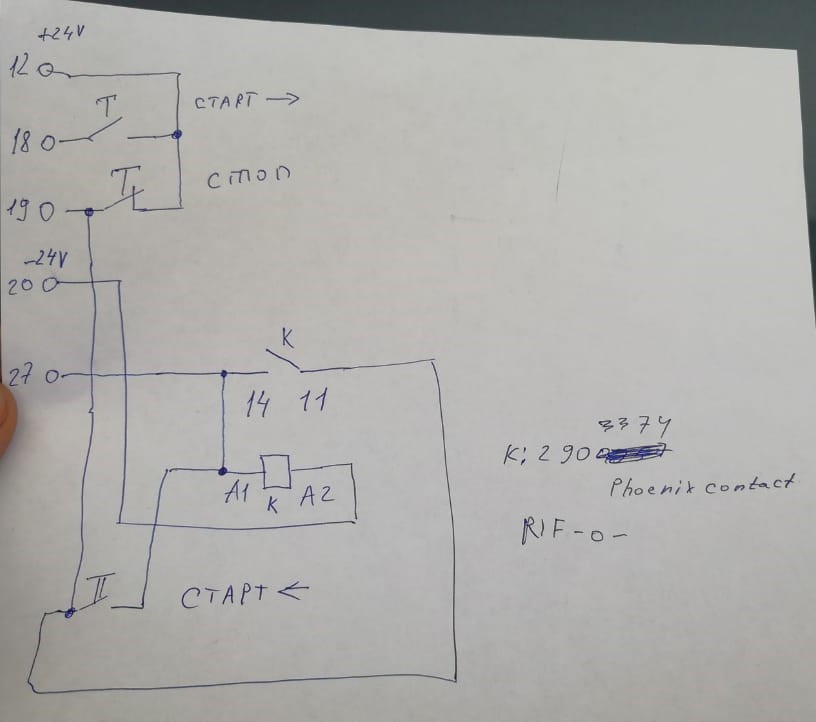 +24V
12
T
СТАРТ →
18
T
стоп
19
-24V
20
K
27
14 11
3374
K: 290
A1 K A2
Phoenix contact
RIF-0-
СТАРТ ←